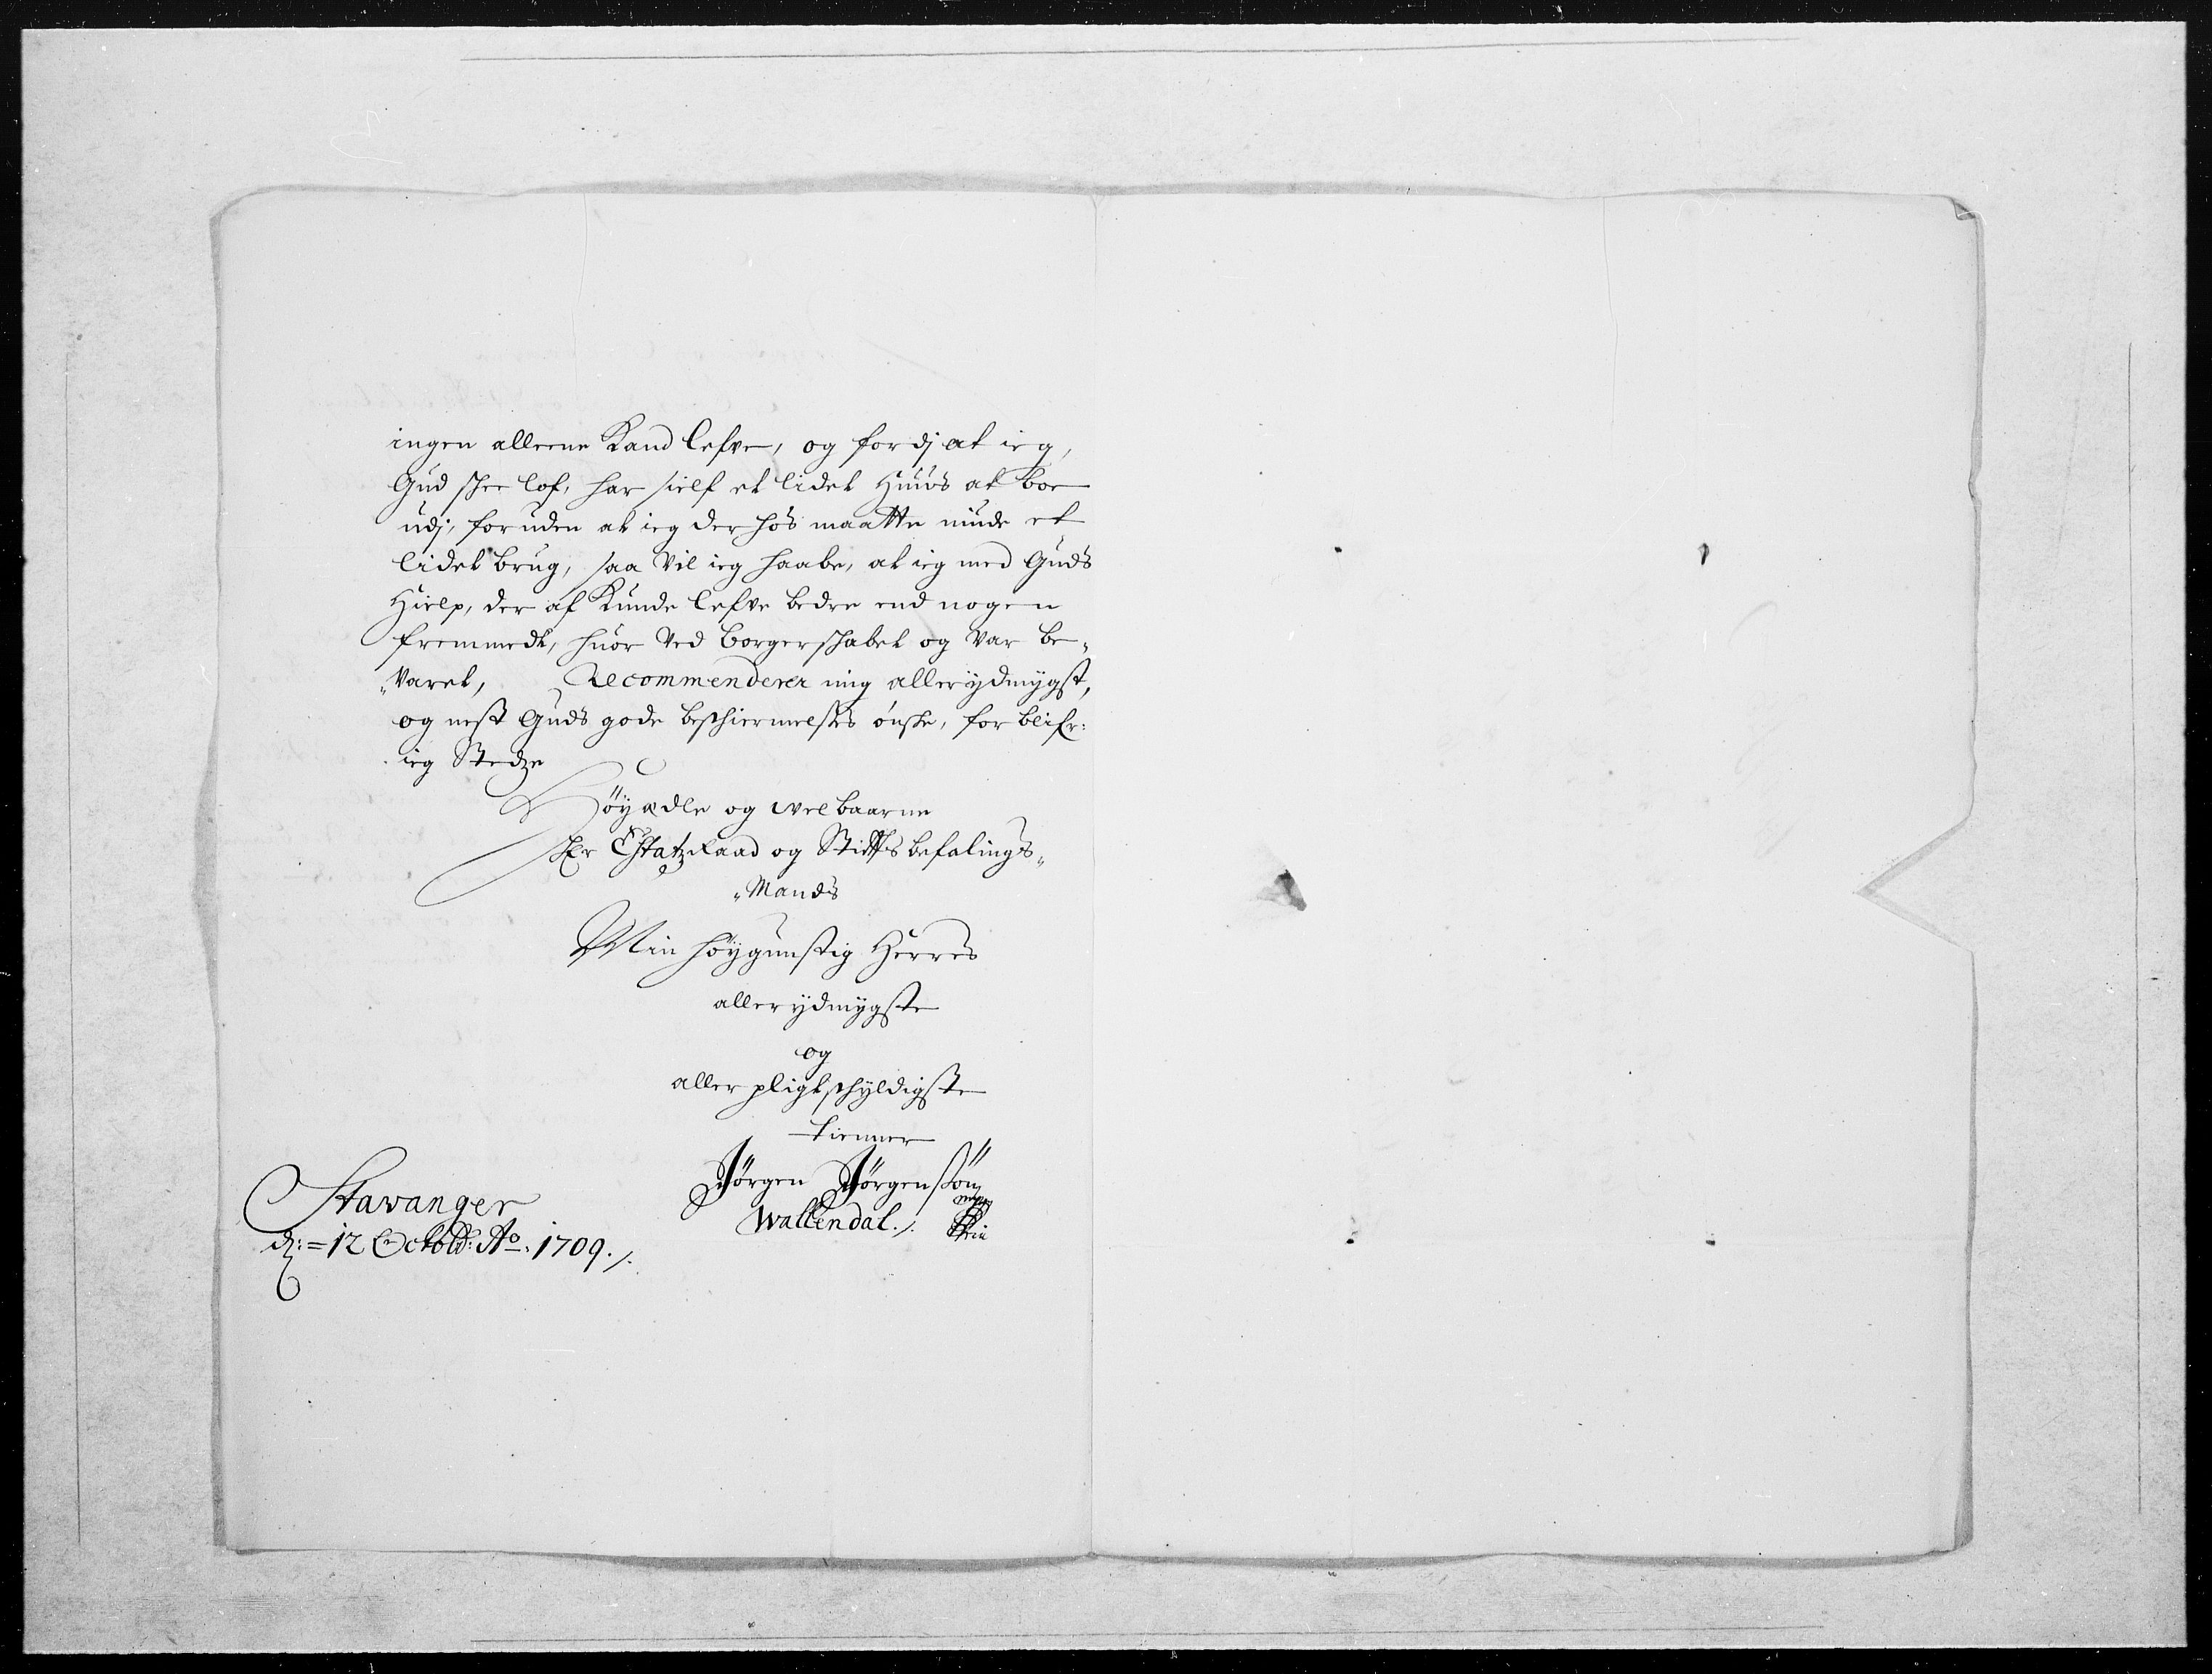 ingen alleene Kand lefve, og fordj at ieg,
Gud skee lof, har sielf et lidet Huus at boe
udj, foruden at ieg der hos maatte niude et
lidet brug, saa vil ieg haabe, at ieg med Guds
Hielp, der af Kunde lefve bedre end nogen
fremmedt, huor ved borgerskabet og var be„
„varet, Recommenderer mig allerydmygst,
og nest Guds gode beskiermelses ønske, forblifr:
ieg Stedze
Höyædle og velbaarne
Hr Etatz Raad og Stifts befalings„
„Mands
Min höygunstig Herres
allerydmygste
og
aller pligtskyldigste
tienner
Jörgen Jörgensön
Wallendal./.
Stavanger
d: = 12 Octobr: Ao: 1709./.